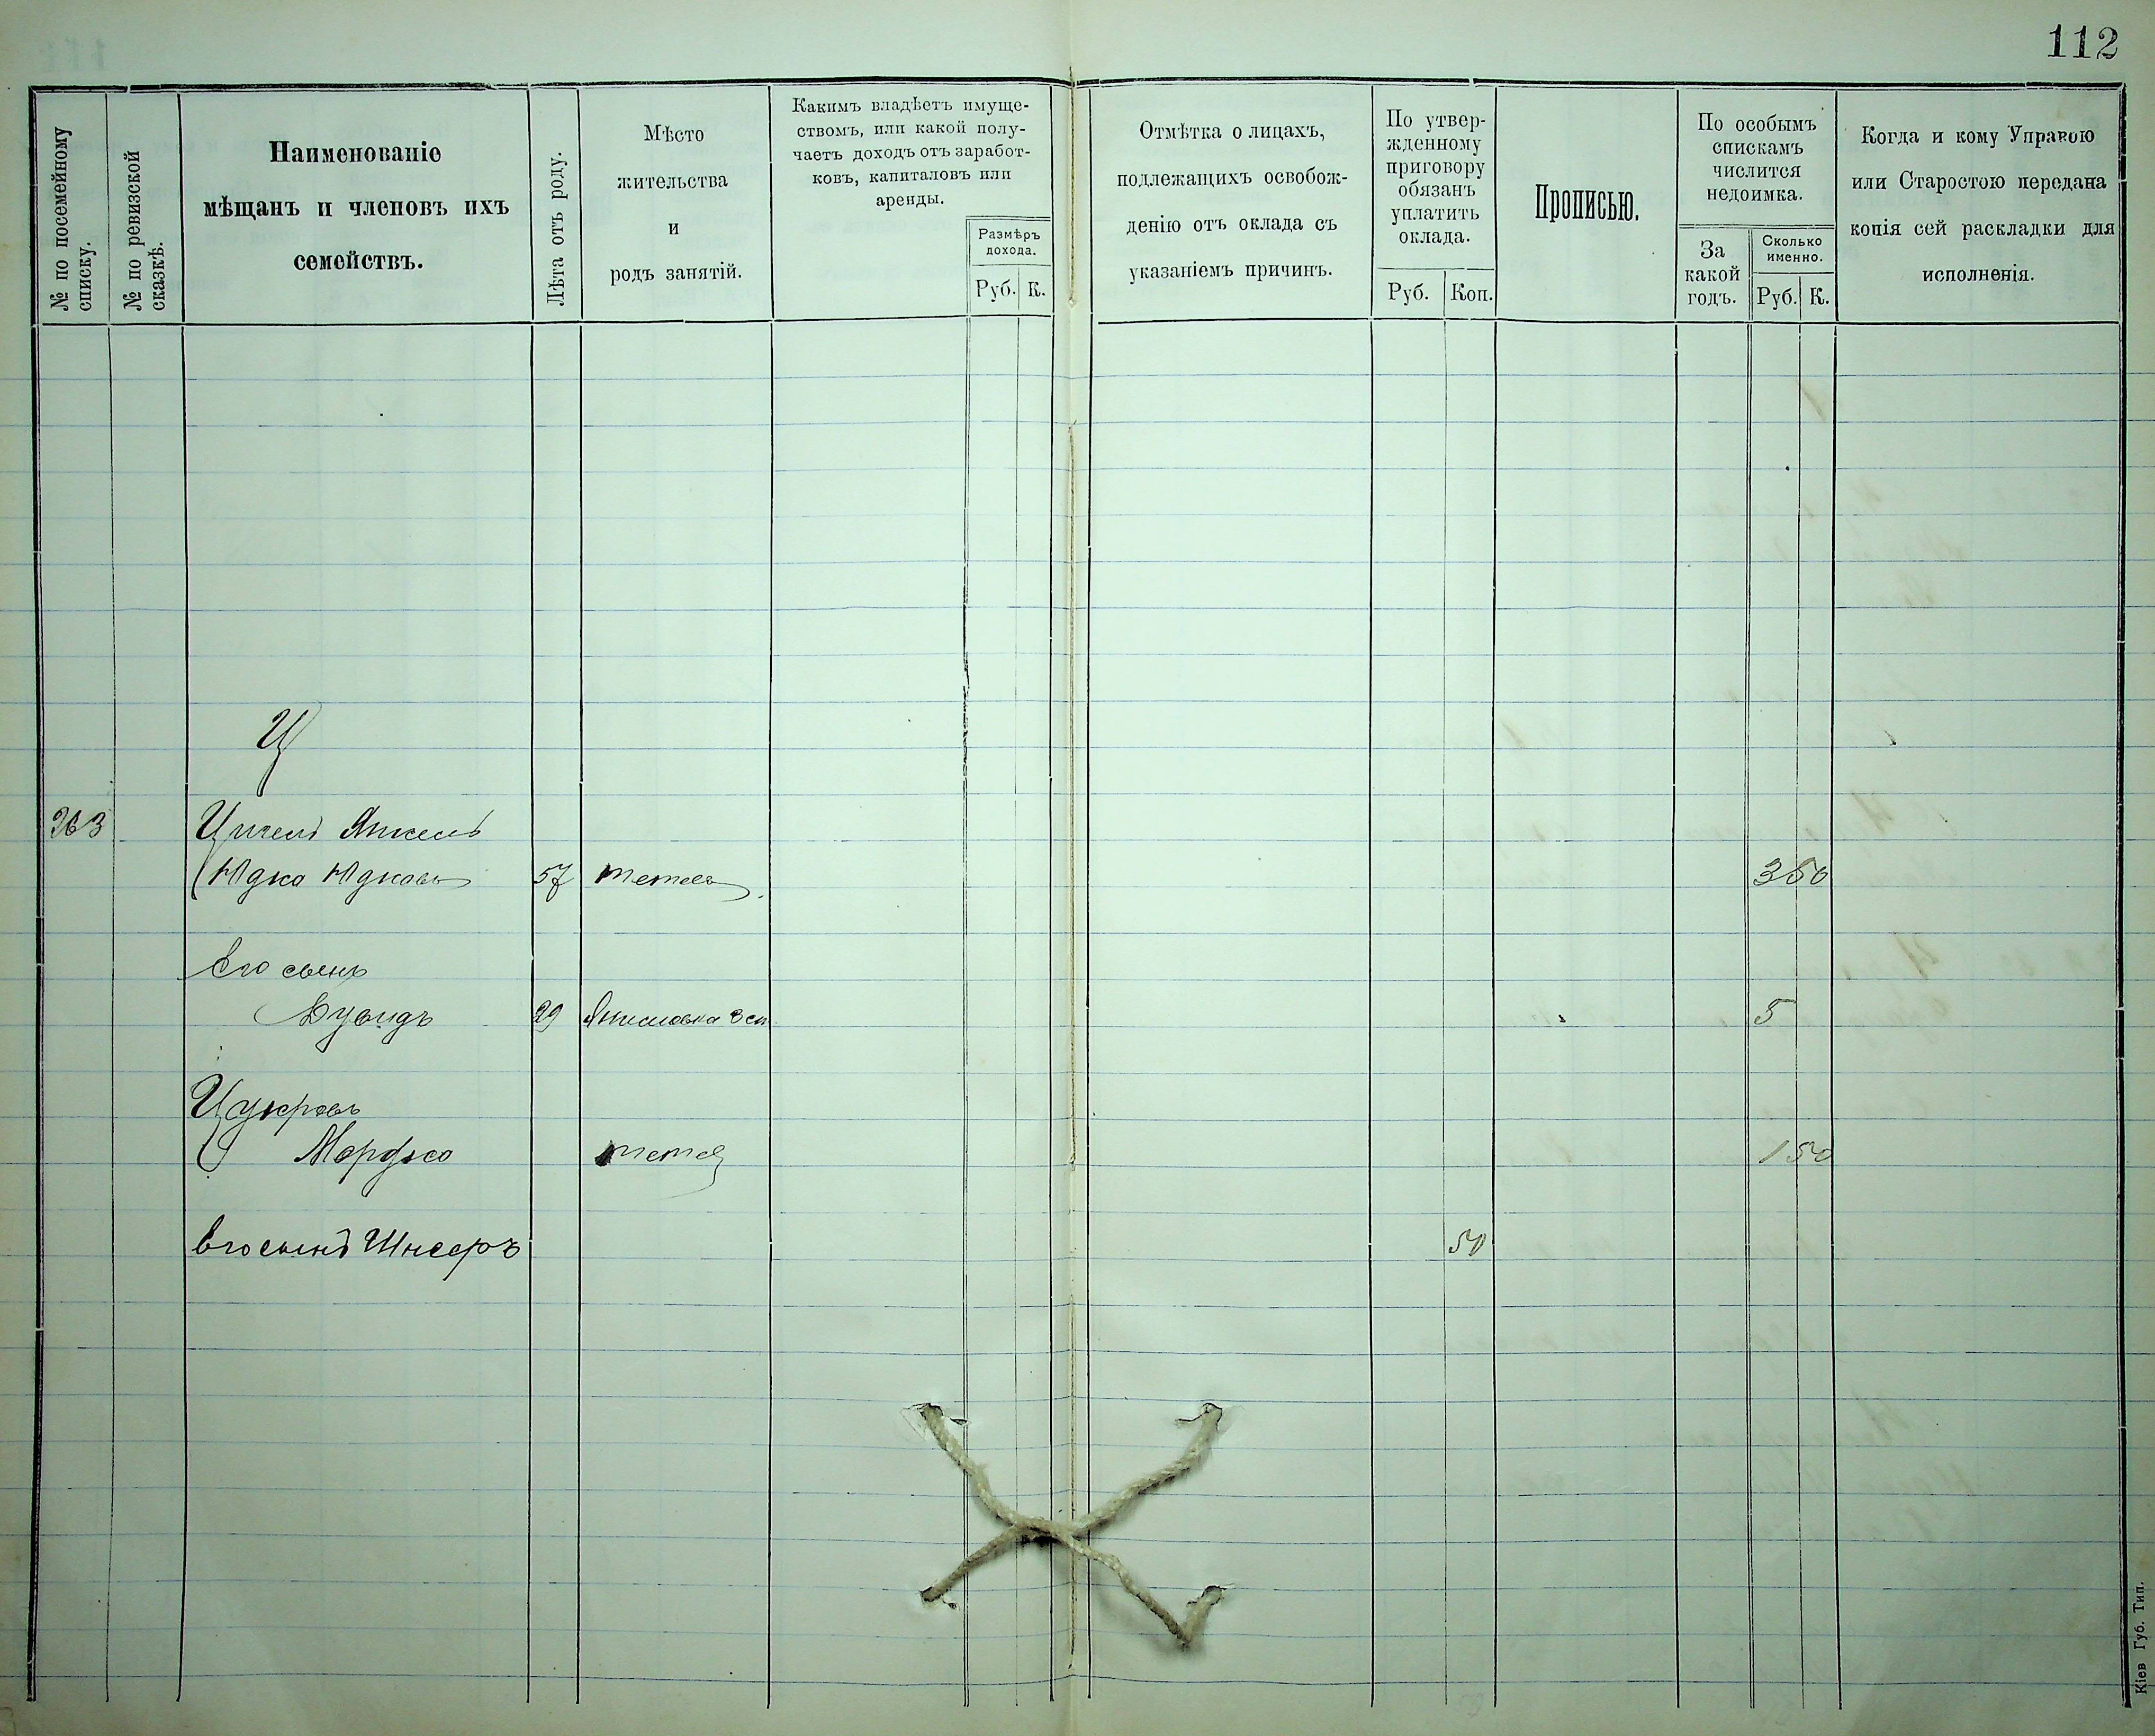 112
№ по посемейному
списку.
№ по ревизской
сказкѣ.
Наименованіе
мѣщанъ и членовъ ихъ
семействъ.
Лѣта отъ роду.
Мѣсто
жительства
и
родъ занятій.
Какимъ владѣетъ имуще-
ствомъ, или какой полу-
чаетъ доходъ отъ заработ-
ковъ, капиталовъ или
аренды.
Размѣръ
дохода.
Руб. К.
Отмѣтка о лицахъ,
подлежащихъ освобож-
денію отъ оклада съ
указаніемъ причинъ.
По утвер-
жденному
приговору
обязанъ
уплатить
оклада.
Руб. Коп.
Прописью.
По особымъ
спискамъ
числится
недоимка.
За
какой
годъ.
Сколько
именно.
Руб. К.
Когда и кому Управою
или Старостою передана
копія сей раскладки для
исполненія.
Ц
263
Юдко Юдковъ 57 3 50
Его сынъ
Дувидъ 29 5
Мордко 1 50
Его сынъ 50
Кіев Губ. Тип.